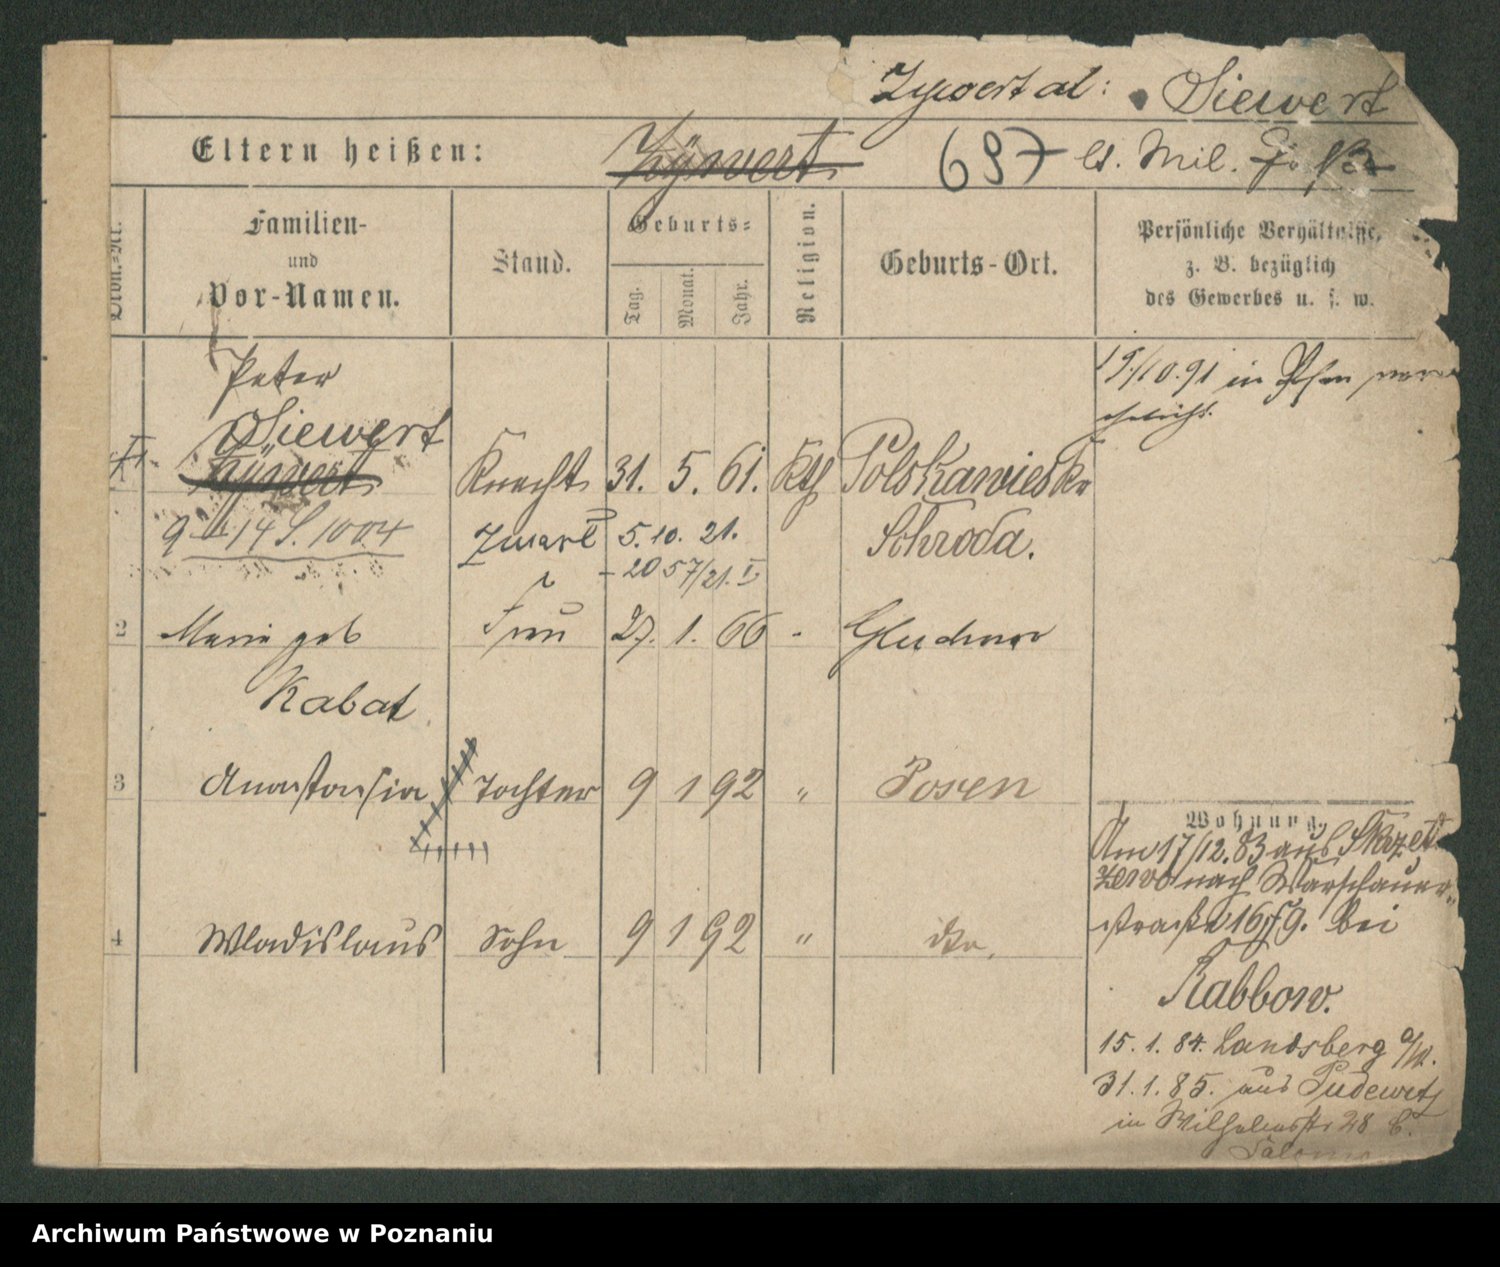 Zywert al: Siewert
Eltern heißen: Zÿwert 697 lt. Mil.
Ordn.-Nr.
Familien-
und
Vor-Namen.
Stand.
Geburts-
Tag. Monat. Jahr.
Religion.
Geburts-Ort.
Persönliche Verhältnisse,
z. B. bezüglich
des Gewerbes u. s. w.
Peter
Siewert
Zÿwert Knecht 31. 5. 61. Kth Polskawies Kr
Schroda.
9 II 14 S. 1004 Zmarł 5. 10. 21.
- 2057/21. I
15/10.91 in Posen ver
ehelicht.
2 Marie geb Frau 27. 1. 66 -
Kabat
3 Anastasia Tochter 9 1 92 " Posen
4 Wladislaus Sohn 9 1 92 " dto.
Wohnung.
Am 17/12.83 aus
nach Warschauer-
straße 16/19. bei
Rabbow.
15. 1. 84. Landsberg a/W.
31. 1. 85. aus Pudewitz
in Wilhelmstr 28 b.
Archiwum Państwowe w Poznaniu